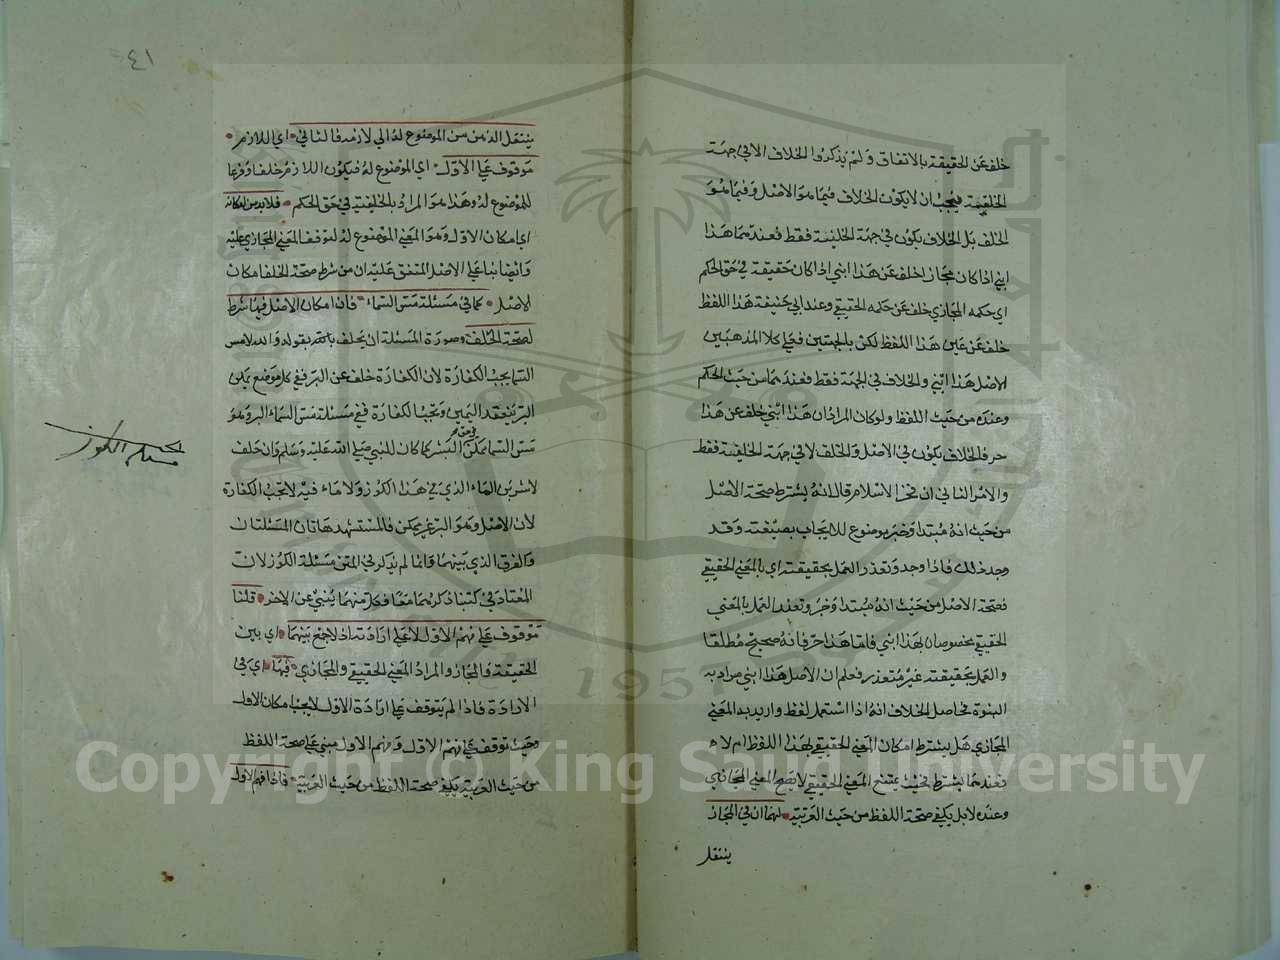 خلف عن الحقيقة بالاتفاق ولم يذكروا الخلاف الا في جهة
الخلفية فيجب ان لا يكون الخلاف فيما هو الاصل وفيما هو
الخلف بل الخلاف يكون في جهة الخلفية فقط فعندهما هذا
ابني اذا كان مجازا خلف عن هذا ابني اذا كان حقيقة في حق الحكم
اي حكمه المجازي خلف عن حكمه الحقيقي وعند ابي حنيفة هذا اللفظ
خلف عن عين هذا اللفظ لكن بالجهتين فعلى كلا المذهبين
الاصل هذا ابني والخلاف في الجهة فقط فعندهما من حيث الحكم
وعنده من حيث اللفظ ولو كان المراد ان هذا ابني خلف عن هذا
حر فالخلاف يكون في الاصل والخلف لا في جهة الخلفية فقط
والامر الثاني ان فخر الاسلام قال انه يشترط صحة الاصل
من حيث انه مبتدا وخبر موضوع للايجاب بصيغته وقد
وجد ذلك فاذا وجد وتعذر العمل بحقيقته اي بالمعني الحقيقي
فصحة الاصل من حيث انه مبتدا وخبر وتعذر العمل بالمعني
الحقيقي مخصوصان بهذا ابني فاما هذا حر فانه صحيح مطلقا
والعمل بحقيقته غير متعذر فعلم ان الاصل هذا ابني مراد به
البنوة فحاصل الخلاف انه اذا استعمل لفظ واريد به المعني
المجازي هل يشترط امكان المعني الحقيقي لهذا اللفظ ام لا
فعندهما يشترط فحيث يمتنع المعني الحقيقي لا يصح المعني المجازي
وعنده لا بل يكفي صحة اللفظ من حيث العربية لهما ان في المجاز
ينتقل
٤١
ينتقل الذهن من الموضوع له الي لازمه فالثاني اي اللازم
موقوف علي الاول اي الموضوع له فيكون اللازم خلفا وفرعا
للموضوع له وهذا هو المراد بالخلفية في حق الحكم فلا بد من امكانه
اي امكان الاول وهو المعني الموضوع له لتوقف المعني المجازي عليه
وايضا بناء علي الاصل المتفق عليه ان من شرط صحة الخلف امكان
الاصل كما في مسئلة مس السماء فان امكان الاصل فيها شرط
لصحة الخلف وصورة المسئلة ان يحلف بقوله والله لامس
السما يجب الكفارة لان الكفارة خلف عن البر ففي كل موضع يمكن
البر ينعقد اليمين وتجب الكفارة ففي مسئلة مس السماء البر وهو
مس السما ممكن في حق البشر كما كان للنبي صلي الله عليه وسلم وان حلف
لاشربن الماء الذي في هذا الكوز ولا ماء فيه لا تجب الكفارة
لان الاصل وهو البر غير ممكن فالمستشهد هاتان المسئلتان
والفرق الذي بينهما وانما لم يذكر في المتن مسئلة الكوز لان
المعتاد في كتبنا ذكرهما معا فكل منهما ينبئ عن الاخر قلنا
موقوف علي فهم الاول لا علي ارادته اذ لا جمع بينهما اي بين
الحقيقة والمجاز والمراد المعني الحقيقي والمجازي فيها اي في
الارادة فاذا لم يتوقف علي ارادة الاول لا يجب امكان الاول
وحيث توقف علي فهم الاول وفهم الاول مبني علي صحة اللفظ
من حيث العربية يكفي صحة اللفظ من حيث العربية فاذا فهم الاول
مسئلة الكوز
1957
Copyright © King Saud University